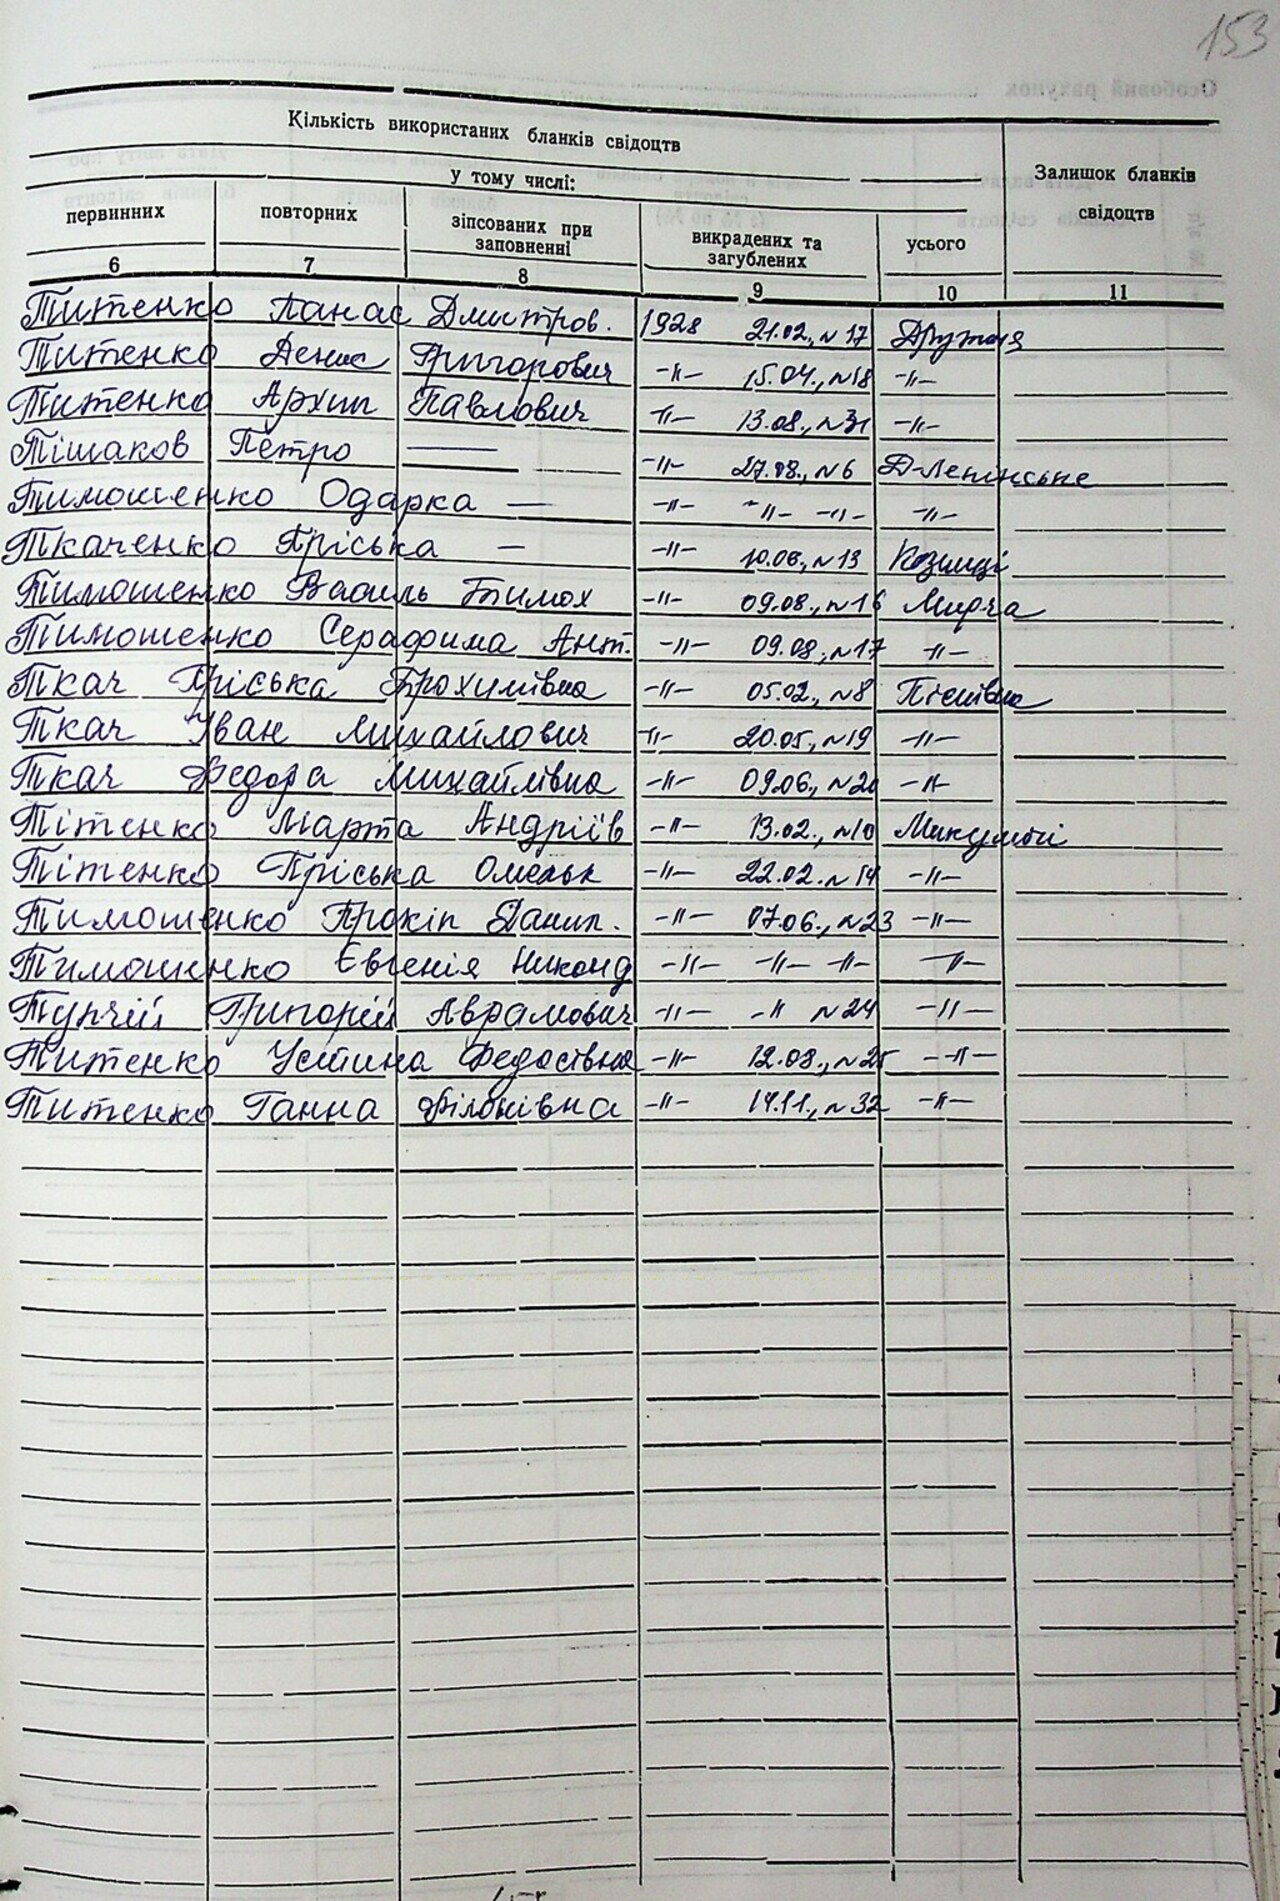 153
Кількість використаних бланків свідоцтв
у тому числі:
Залишок бланків свідоцтв
первинних повторних зіпсованих при заповненні викрадених та загублених усього
6 7 8 9 10 11
Титенко Панас Дмитров. 1928 21.02., №17 Дружня
Титенко Денис Григорович -"- 15.04., №18 -"-
Титенко Архип Павлович -"- 13.08., №31 -"-
Тішаков Петро — -"- 27.08., №6 Д-Ленінське
Тимошенко Одарка — -"- -"- -"- -"-
Ткаченко Пріська — -"- 10.06., №13 Козинці
Тимошенко Василь Тимох -"- 09.08., №16 Мирча
Тимошенко Серафима Ант. -"- 09.08., №17 -"-
Ткач Пріська Трохимівна -"- 05.02., №8
Ткач Іван Михайлович -"- 20.05., №19 -"-
Ткач Федора Михайлівна -"- 09.06., №20 -"-
Тітенко Марта Андріїв -"- 13.02., №10 Микуличі
Тітенко Пріська Омельк -"- 22.02. №14 -"-
Тимошенко Прокіп Данил. -"- 07.06., №23 -"-
Тимошенко Євгенія Никонд -"- -"- -"- -"-
Григорій Аврамович -"- -" №24 -"-
Титенко Устина Федосівна -"- 12.08., №25 -"-
Титенко Ганна Філонівна -"- 14.11., №32 -"-